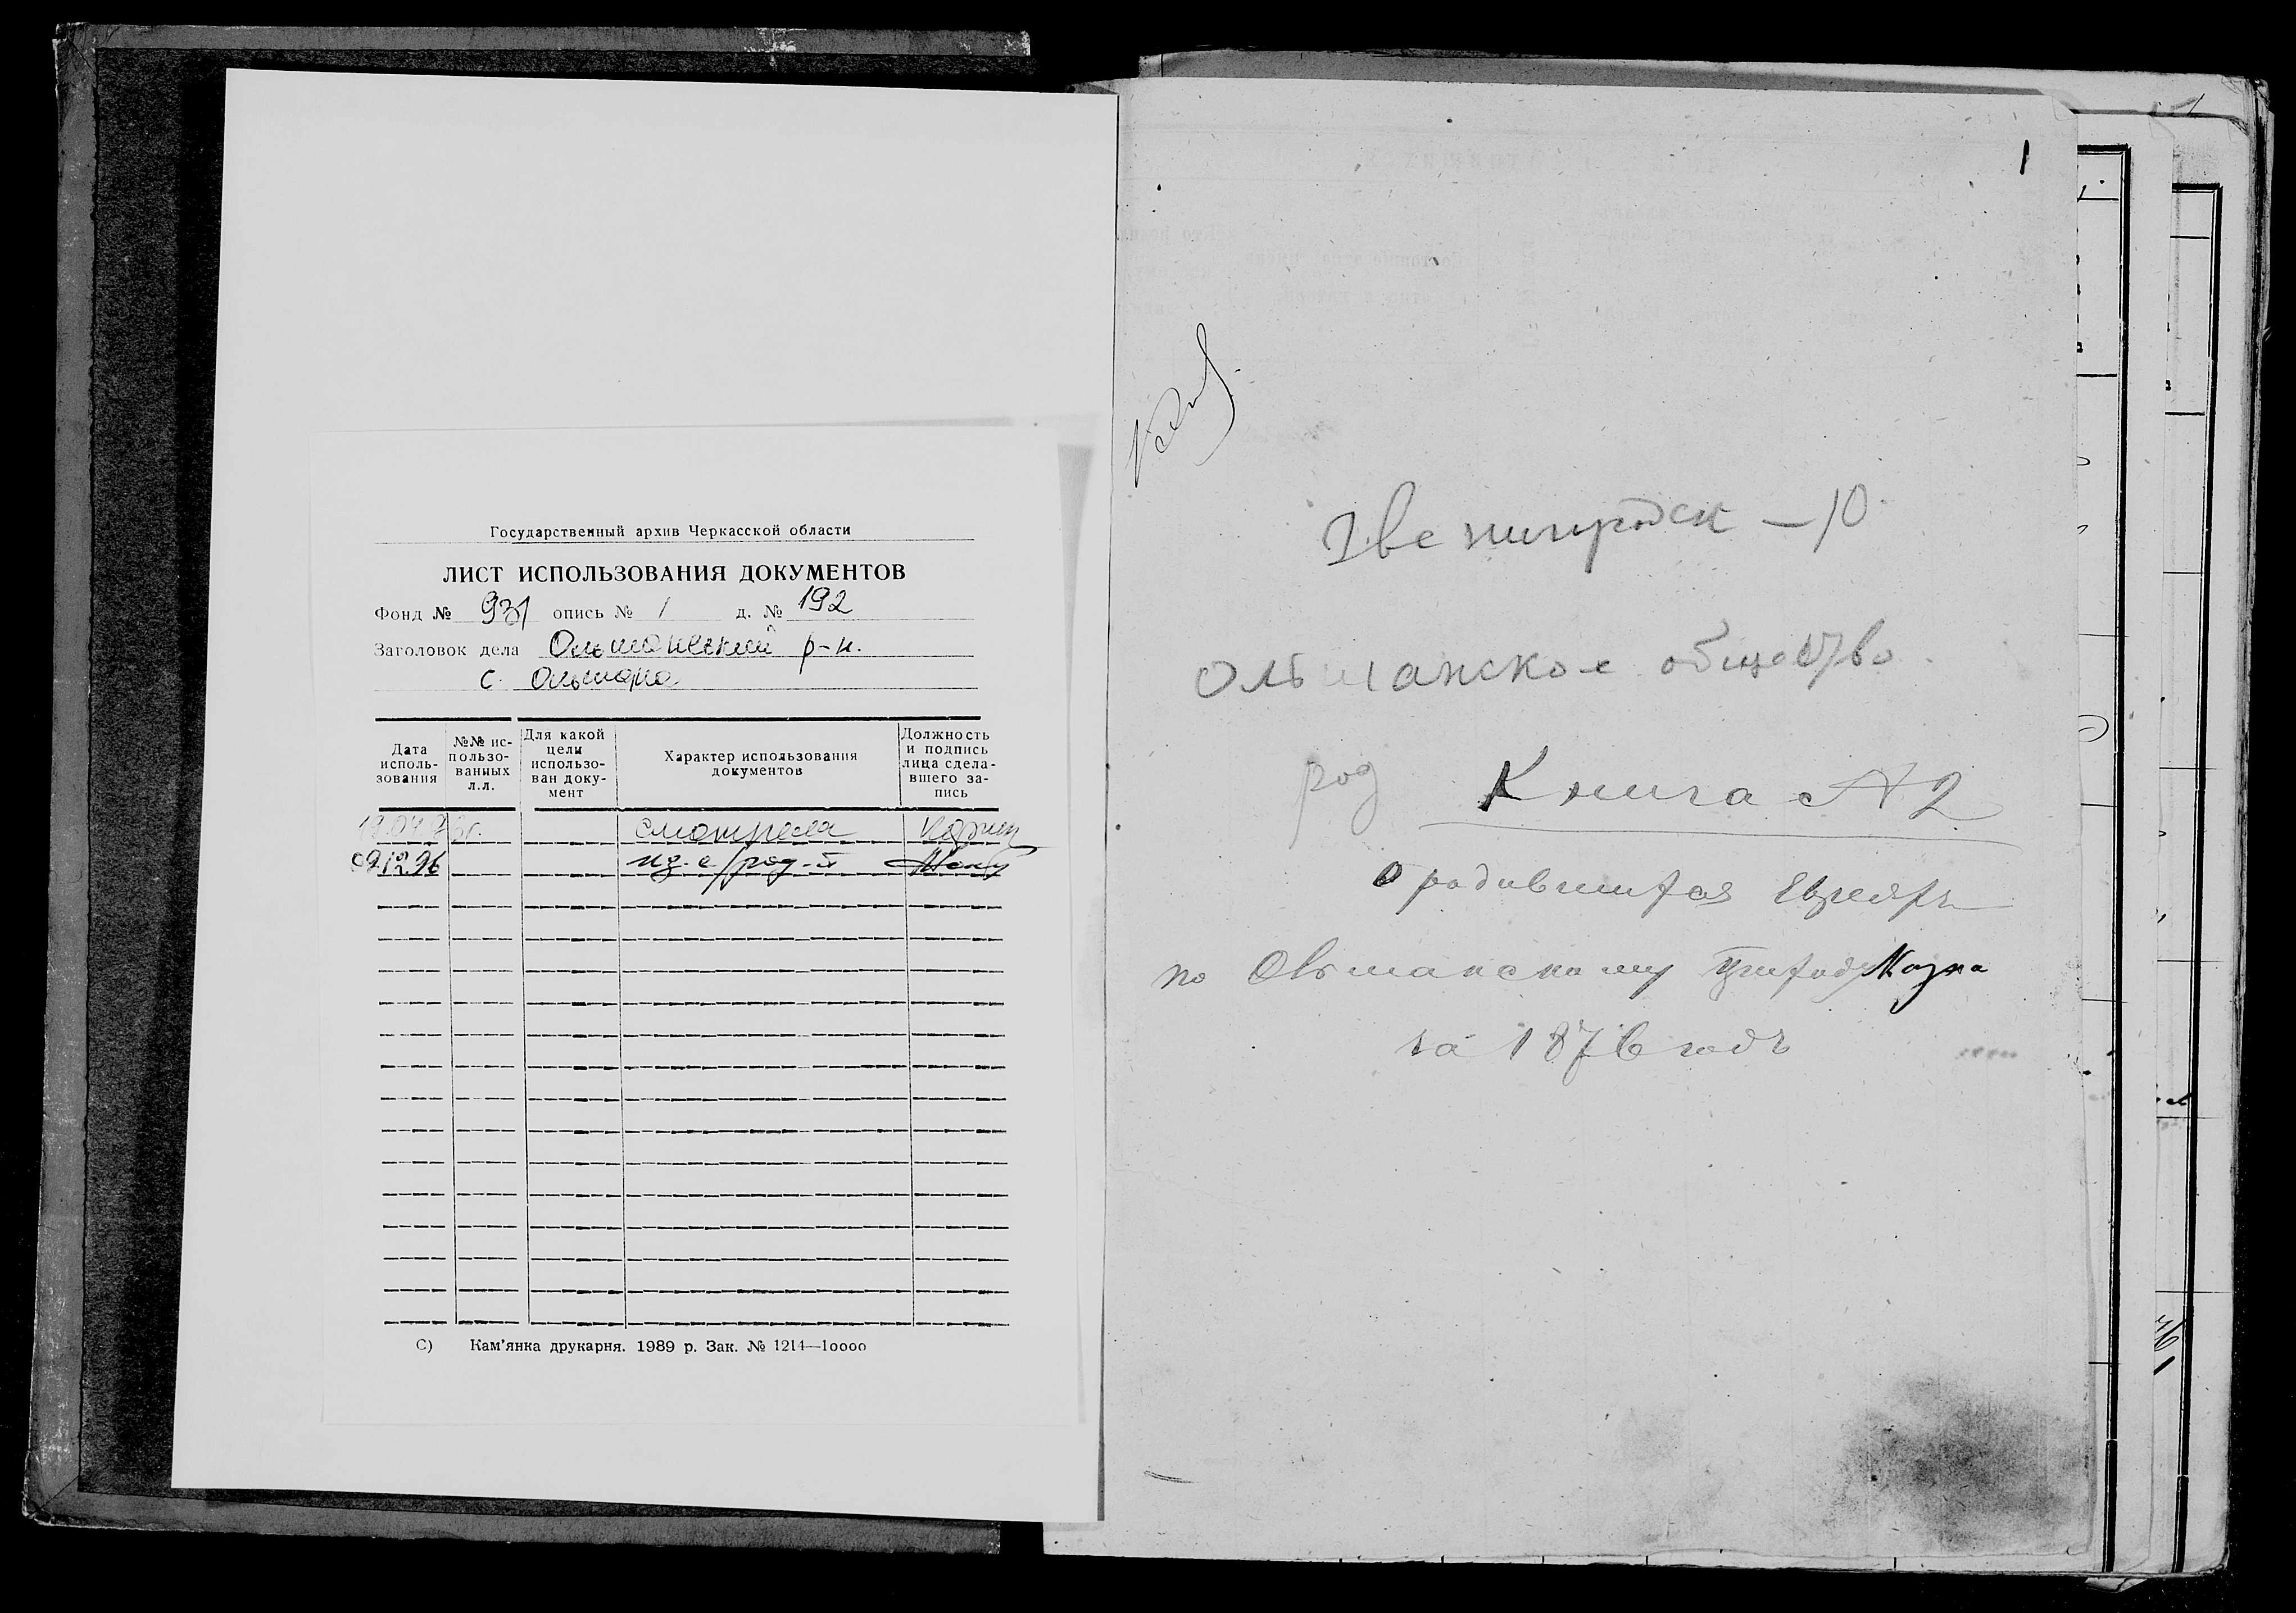 Государственный архив Черкасской области
ЛИСТ ИСПОЛЬЗОВАНИЯ ДОКУМЕНТОВ
Фонд № 931 опись № 1 д. № 192
Заголовок дела Ольшанский р-н.
с. Ольшана
Дата исполь-зования
№№ ис-пользо-ванных л.л.
Для какой цели использо-ван доку-мент
Характер использования документов
Должность и подпись лица сдела-вшего за-пись
смотрела
09.12.96
С) Кам'янка друкарня. 1989 р. Зак. № 1214—10000
1
Звенигородск — 10
Ольшанское общество
род Книга № 2
О родившихся Евреяхъ
по Ольшанскому
за 1876 годъ